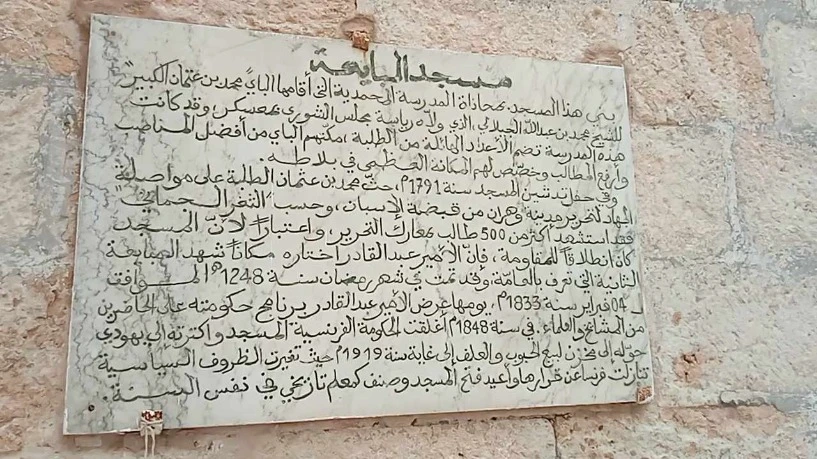 مسجد المبايعة
بني هذا المسجد بمحاذاة المدرسة المحمدية التي أقامها الباي محمد بن عثمان الكبير"
للشيخ محمد بن عبدالله الجيلالي، الذي ولاه رياسة مجلس الشورى بمعسكر، وقد كانت
هذه المدرسة تضم الأعداد الهائلة من الطلبة، مكنهم الباي من أفضل المناصب
وأرفع المطالب وخصص لهم المكانة العظمى في بلاطه.
وفي حفل تدشين المسجد سنة 1791م، حث محمد بن عثمان الطلبة على مواصلة
الجهاد لتحرير مدينة وهران من قبضة الإسبان، وحسب "الثغر الجماني"
فقد استشهد أكثر من 500 طالب بمعارك التحرير، واعتباراً لأن المسجد
كان انطلاقاً للمقاومة، فإن الأمير عبد القادر اختاره مكاناً شهد المبايعة
الثانية التي تعرف بالعامة وقد تمت في شهر رمضان سنة 1248هـ الموافق
لـ 04 فبراير سنة 1833م، يومها عرض الأمير عبد القادر برنامج حكومته على الحاضرين
من المشائخ والعلماء. في سنة 1848م أغلقت الحكومة الفرنسية المسجد واكترته إلى يهودي
حوله إلى مخزن لبيع الحبوب والعلف إلى غاية سنة 1919م حيث تغيرت الظروف السياسية
تنازلت فرنسا عن قرارها وأعيد فتح المسجد وصنف كمعلم تاريخي في نفس السنة.